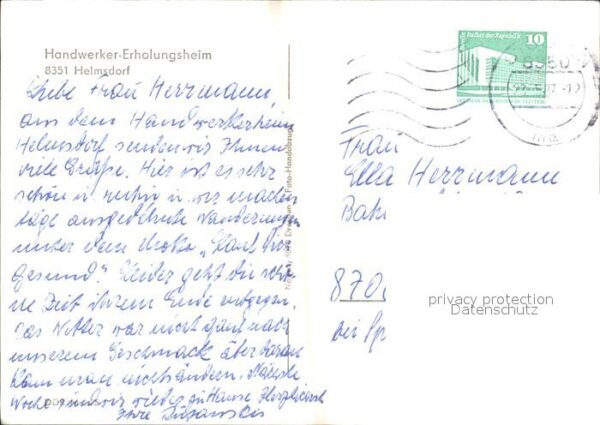 Handwerker-Erholungsheim
8351 Helmsdorf
Liebe Frau Herrmann,
aus dem Handwerkerheim
Helmsdorf senden wir Ihnen
viele Grüße. Hier ist es sehr
schön u. ruhig u. wir machen
ausgedehnte Wanderungen
unter dem Motto „Lauf dich
gesund." Leider geht die schö-
ne Zeit ihrem Ende entgegen.
Das Wetter war nicht ganz nach
unserem Geschmack aber daran
kann man nichts ändern. Nächste
Woche sind wir wieder zu Hause. Herzlichst
Ihre
10
Frau
Ella Herrmann
870
bei
privacy protection
Datenschutz